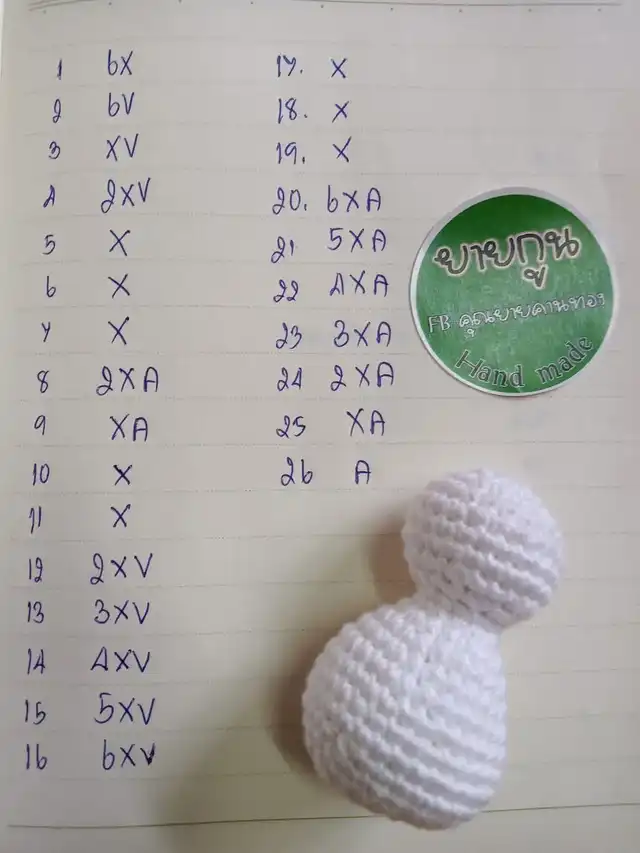 1 6X
2 6V
3 XV
4 2XV
5 X
6 X
7 X
8 2XA
9 XA
10 X
11 X
12 2XV
13 3XV
14 4XV
15 5XV
16 6XV
17. X
18. X
19. X
20. 6XA
21 5XA
22 4XA
23 3XA
24 2XA
25 XA
26 A
ยายกูน
FB คุณยายคานทอง
Hand made